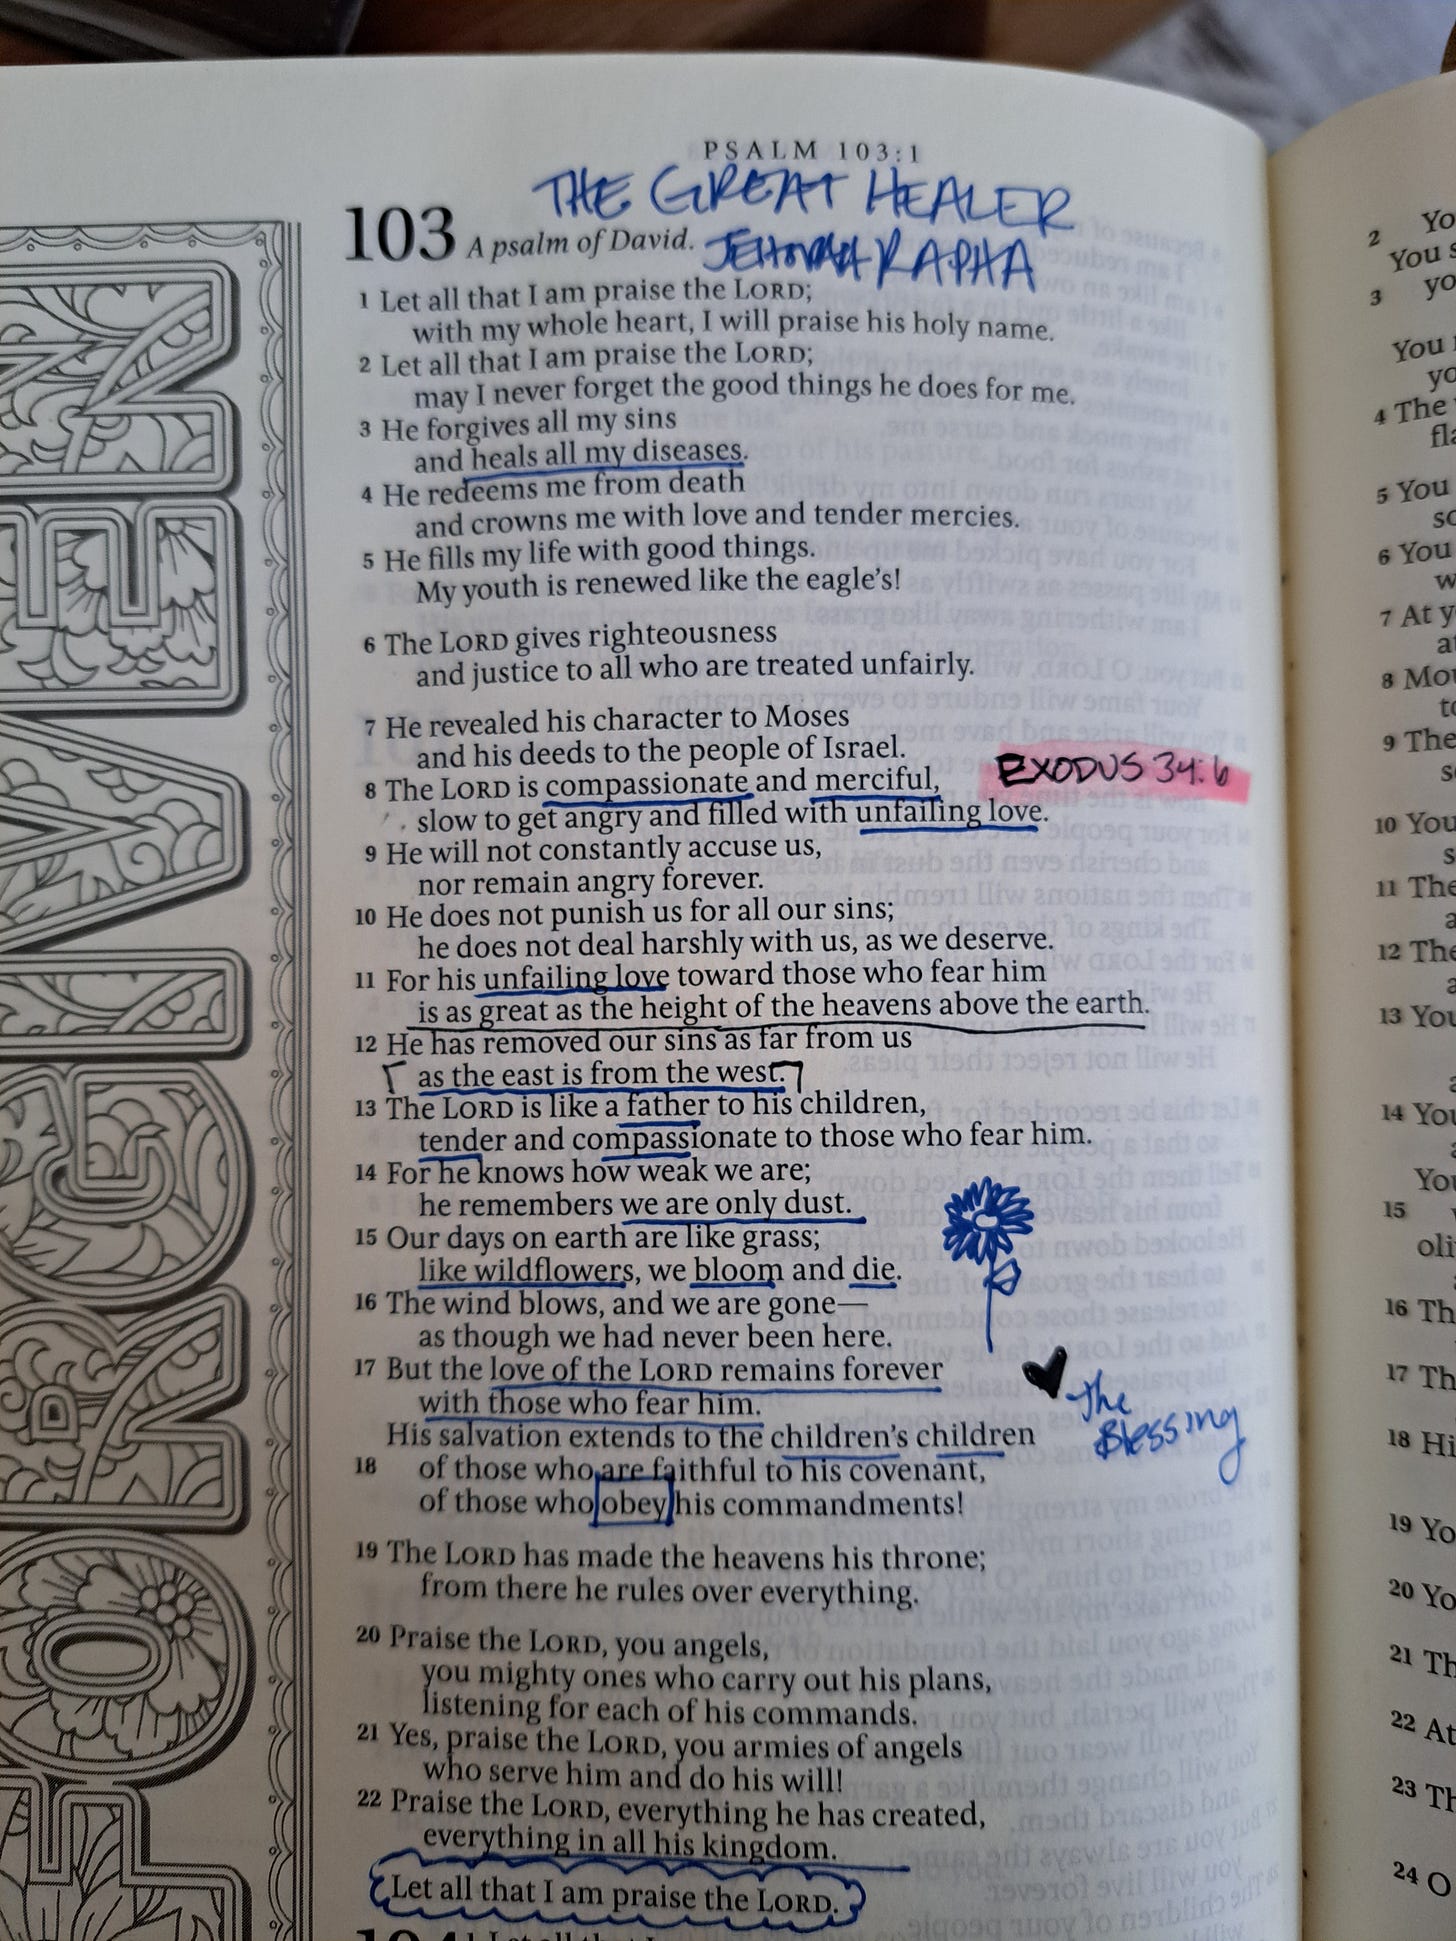 PSALM 103:1
THE GREAT HEALER
103 A psalm of David. JEHOVAH RAPHA
1 Let all that I am praise the LORD;
with my whole heart, I will praise his holy name.
2 Let all that I am praise the LORD;
may I never forget the good things he does for me.
3 He forgives all my sins
and heals all my diseases.
4 He redeems me from death
and crowns me with love and tender mercies.
5 He fills my life with good things.
My youth is renewed like the eagle's!
6 The LORD gives righteousness
and justice to all who are treated unfairly.
7 He revealed his character to Moses
and his deeds to the people of Israel.
EXODUS 34:6
8 The LORD is compassionate and merciful,
slow to get angry and filled with unfailing love.
9 He will not constantly accuse us,
nor remain angry forever.
10 He does not punish us for all our sins;
he does not deal harshly with us, as we deserve.
11 For his unfailing love toward those who fear him
is as great as the height of the heavens above the earth.
12 He has removed our sins as far from us
as the east is from the west.
13 The LORD is like a father to his children,
tender and compassionate to those who fear him.
14 For he knows how weak we are;
he remembers we are only dust.
15 Our days on earth are like grass;
like wildflowers, we bloom and die.
16 The wind blows, and we are gone—
as though we had never been here.
17 But the love of the LORD remains forever
with those who fear him.
The
Blessing
His salvation extends to the children's children
18 of those who are faithful to his covenant,
of those who obey his commandments!
19 The LORD has made the heavens his throne;
from there he rules over everything.
20 Praise the LORD, you angels,
you mighty ones who carry out his plans,
listening for each of his commands.
21 Yes, praise the LORD, you armies of angels
who serve him and do his will!
22 Praise the LORD, everything he has created,
everything in all his kingdom.
Let all that I am praise the LORD.
2
You
3
You
4 The
5 You
6 You
7 At
8
9 The
10 You
11 The
12 The
13 You
14 You
You
15
16
17
18
19
20
21
22 At
23
24 O